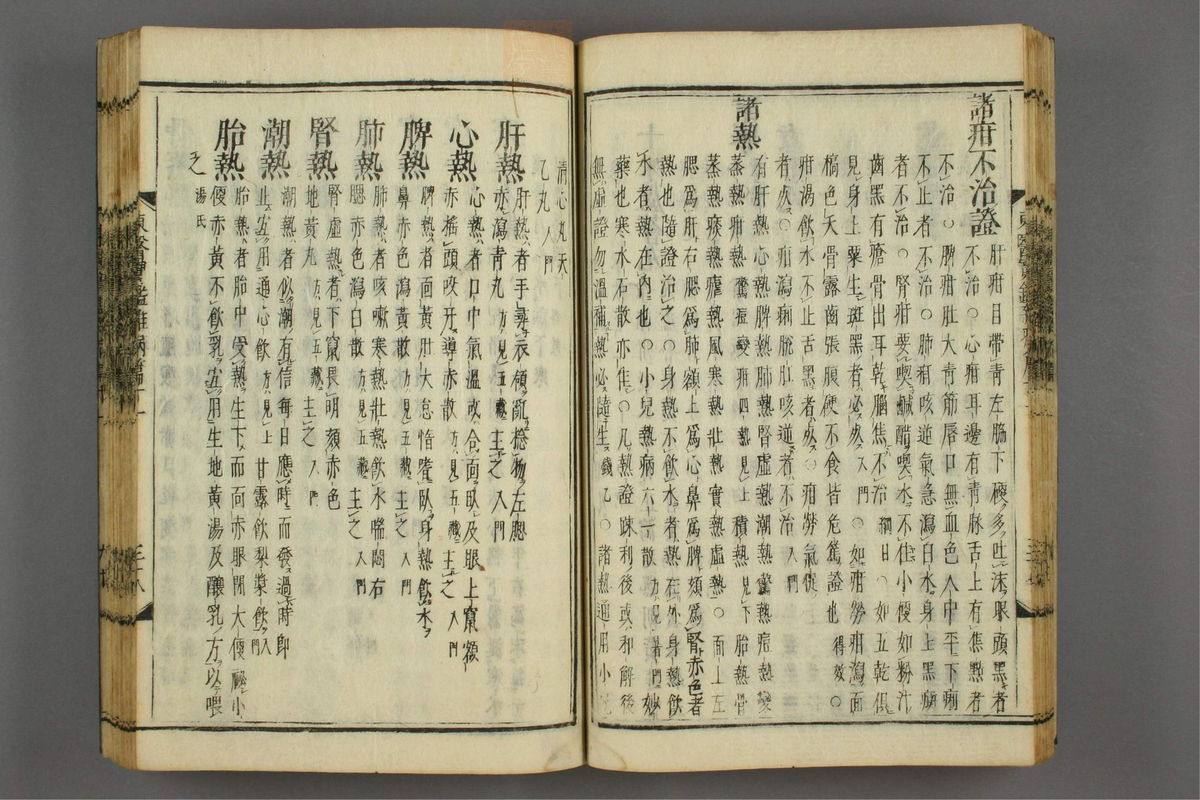 諸疳不治證 肝疳目帶青左脇下硬多吐沫眼頭黑者
不治○心疳耳邊有青脉舌上有焦點者
不治○脾疳肚大青筋唇口無血色人中平下痢
不止者不治○肺疳咳逆氣急瀉白水身上黑癍
者不治○腎疳要喫鹹醋喫水不住小便如粉汁
齒黑有瘡骨出耳乾腦焦不治 綱目○如五乾俱
見身上粟生斑黑者必死 入門○如疳勞疳瀉面
槁色夭骨露齒張腹硬不食皆危篤證也 得效○
疳渴飲水不止舌黑者死○疳勞氣促
者死○疳瀉痢脫肛咳逆者不治 入門
諸熱 有肝熱心熱脾熱肺熱腎虛熱潮熱驚熱疳熱變
蒸熱疳熱 驚疳變疳四熱見上 積熱 見下 胎熱骨
蒸熱痰熱瘧熱風寒熱壯熱實熱虛熱○面上左
腮爲肝右腮爲肺額上爲心鼻爲脾頦爲腎赤色者
熱也隨證治之○小兒熱不飲水者熱在外身熱飲
水者熱在內也○小兒熱病六一散 方見暑門 妙
藥也寒水石散亦佳○凡熱證踈利後或和解後
無虛證勿溫補熱必隨生 錢乙○諸熱通用小
淸心丸天
乙丸 入門
肝熱 肝熱者手尋衣領亂捻物左腮
赤瀉靑丸 方見五藏 主之 入門
心熱 心熱者口中氣溫或合面臥及眼上竄額
赤搖頭咬牙導赤散 方見五藏 主之 入門
脾熱 脾熱者面黃肚大怠惰嗜臥身熱飲水
鼻赤色瀉黃散 方見五藏 主之 入門
肺熱 肺熱者咳嗽寒熱壯熱飲水喘悶右
腮赤色瀉白散 方見五藏 主之 入門
腎熱 腎虛熱者下竄畏明頦赤色
地黃丸 方見五藏 主之 入門
潮熱 潮熱者似潮有信每日應時而發過時卽
止宜用通心飮 方見上 甘露飮梨漿飮 入門
胎熱 胎熱者胎中受熱生下而面赤眼閉大便秘小
便赤黃不飮乳宜用生地黃湯及釀乳方以喂
之 湯氏